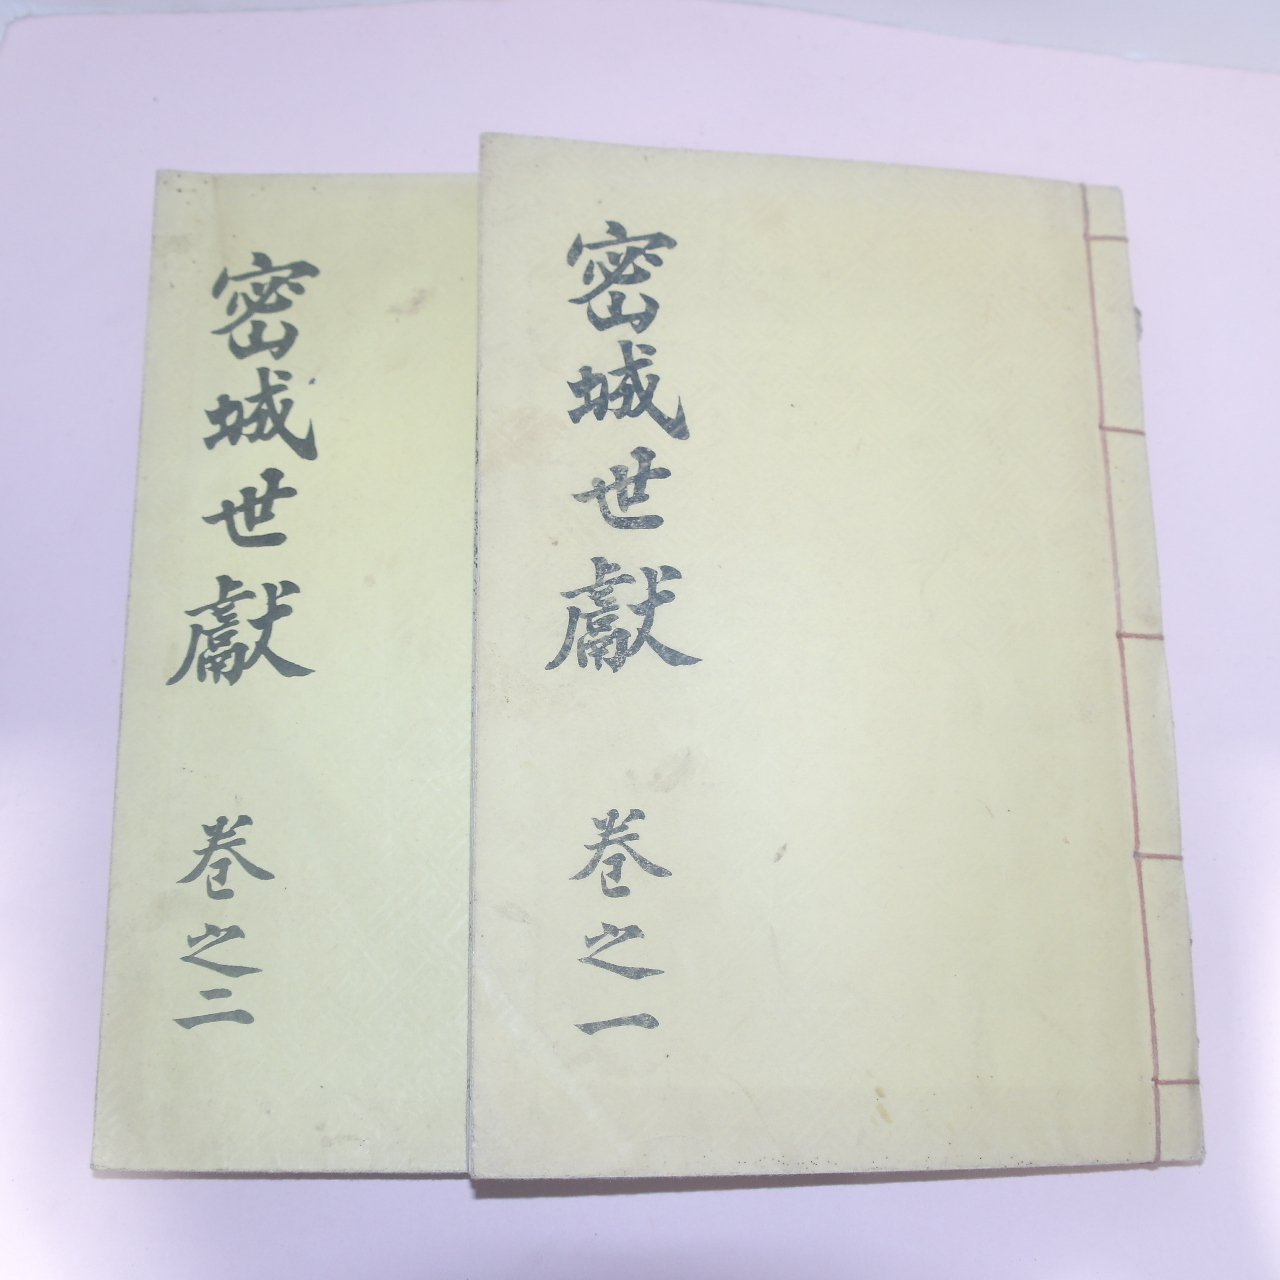 密城世獻 卷之一
密城世獻 卷之二